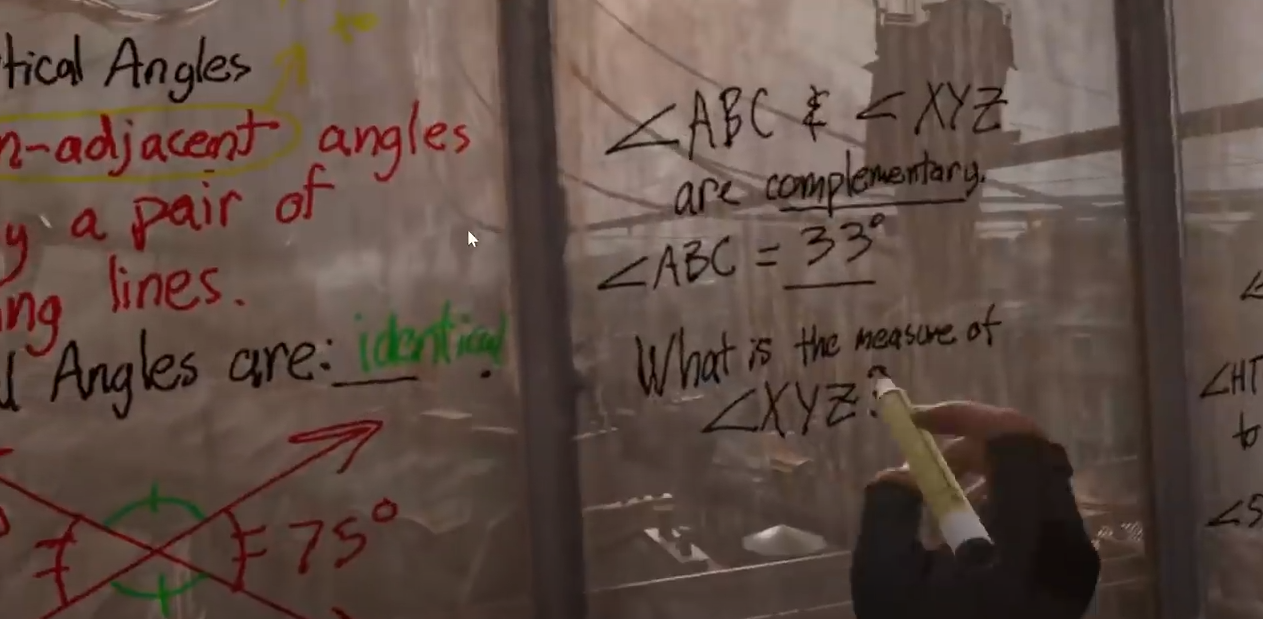 tical Angles
n-adjacent angles
y a pair of
ing lines.
l Angles are: identical.
= 75°
∠ABC & ∠XYZ
are complementary.
∠ABC = 33°
What is the measure of
∠XYZ?
∠HT
to
∠S